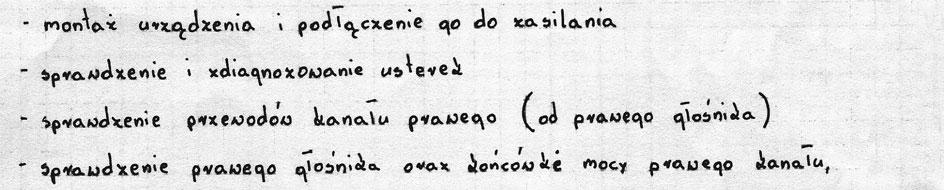 - montaż urządzenia i podłączenie go do zasilania
- sprawdzenie i zdiagnozowanie usterek
- sprawdzenie przewodów kanału prawego (od prawego głośnika)
- sprawdzenie prawego głośnika oraz końcówkę mocy prawego kanału,